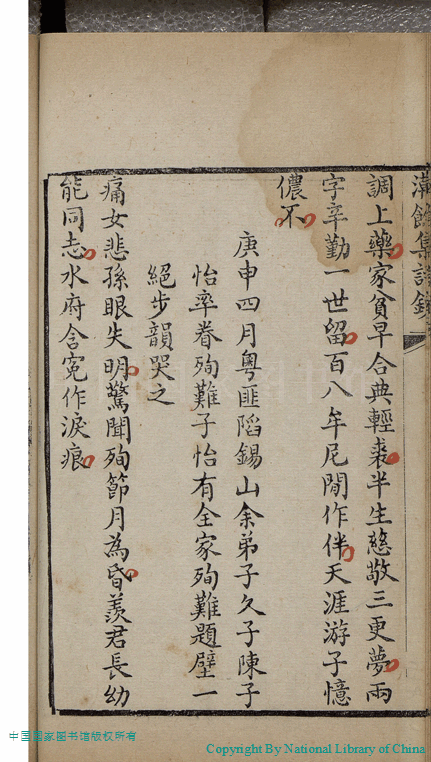 集詩
調上藥家貧早合典輕裘半生慈敬三更夢兩
字辛勤一世留百八年尼閒作伴天涯游子憶
儂不
庚申四月粵匪陷錫山余弟子久子陳子
怡率眷殉難子怡有全家殉難題壁一
絕步韻哭之
痛女悲孫眼失明驚聞殉節月為昏羨君長幼
能同志水府含冤作淚痕
中国国家图书馆版权所有
Copyright By National Library of China